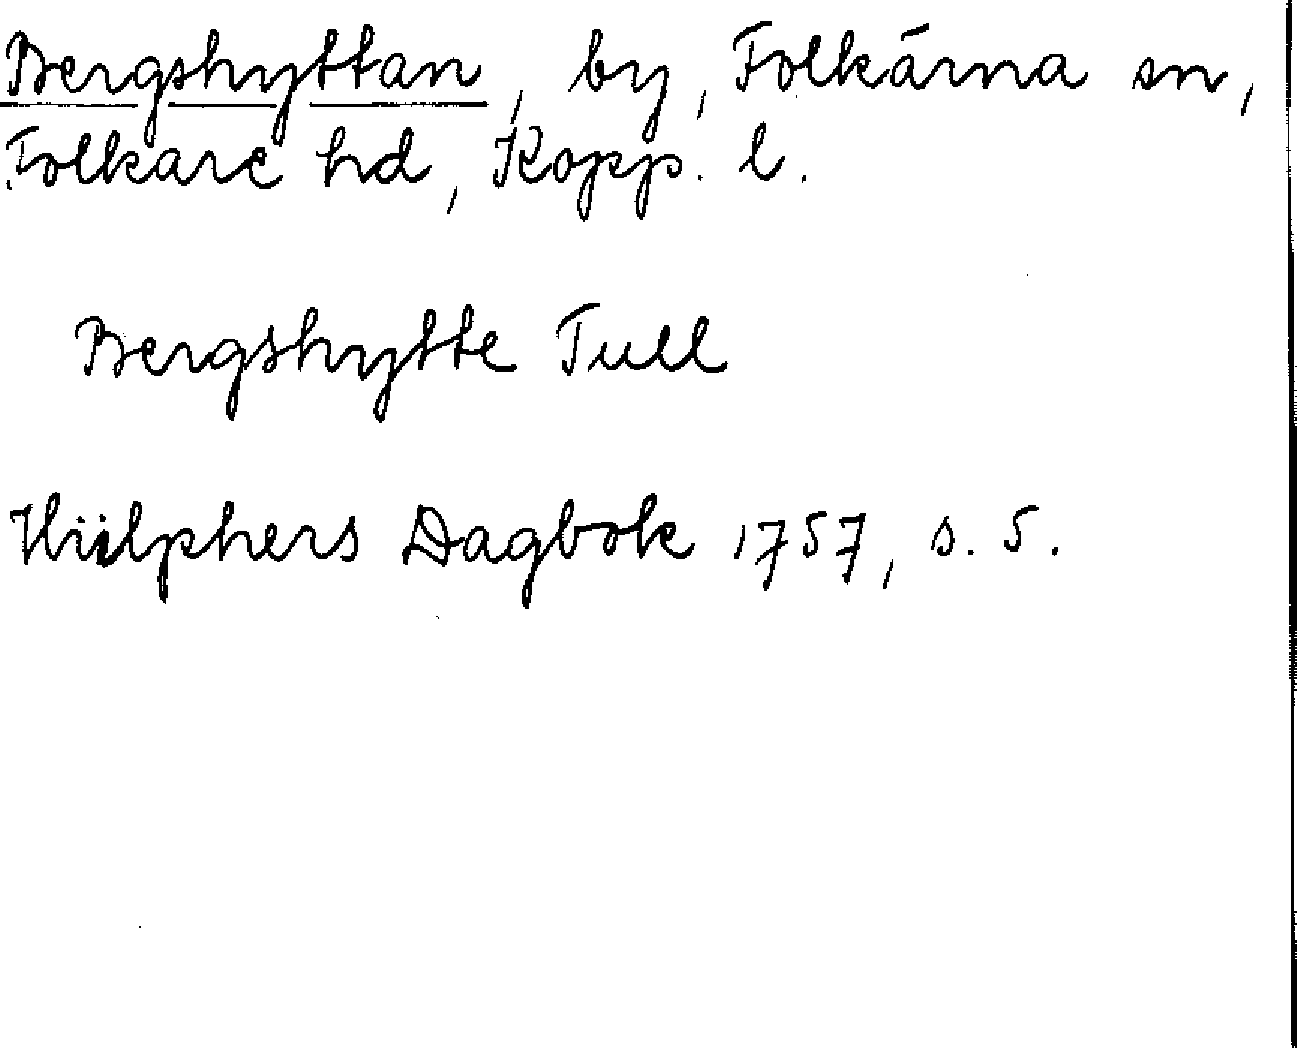 Bergshyttan, by, Folkärna sn,
Folkare hd, Kopp. l.
Bergshytte Tull
Hülphers Dagbok 1757, s. 5.